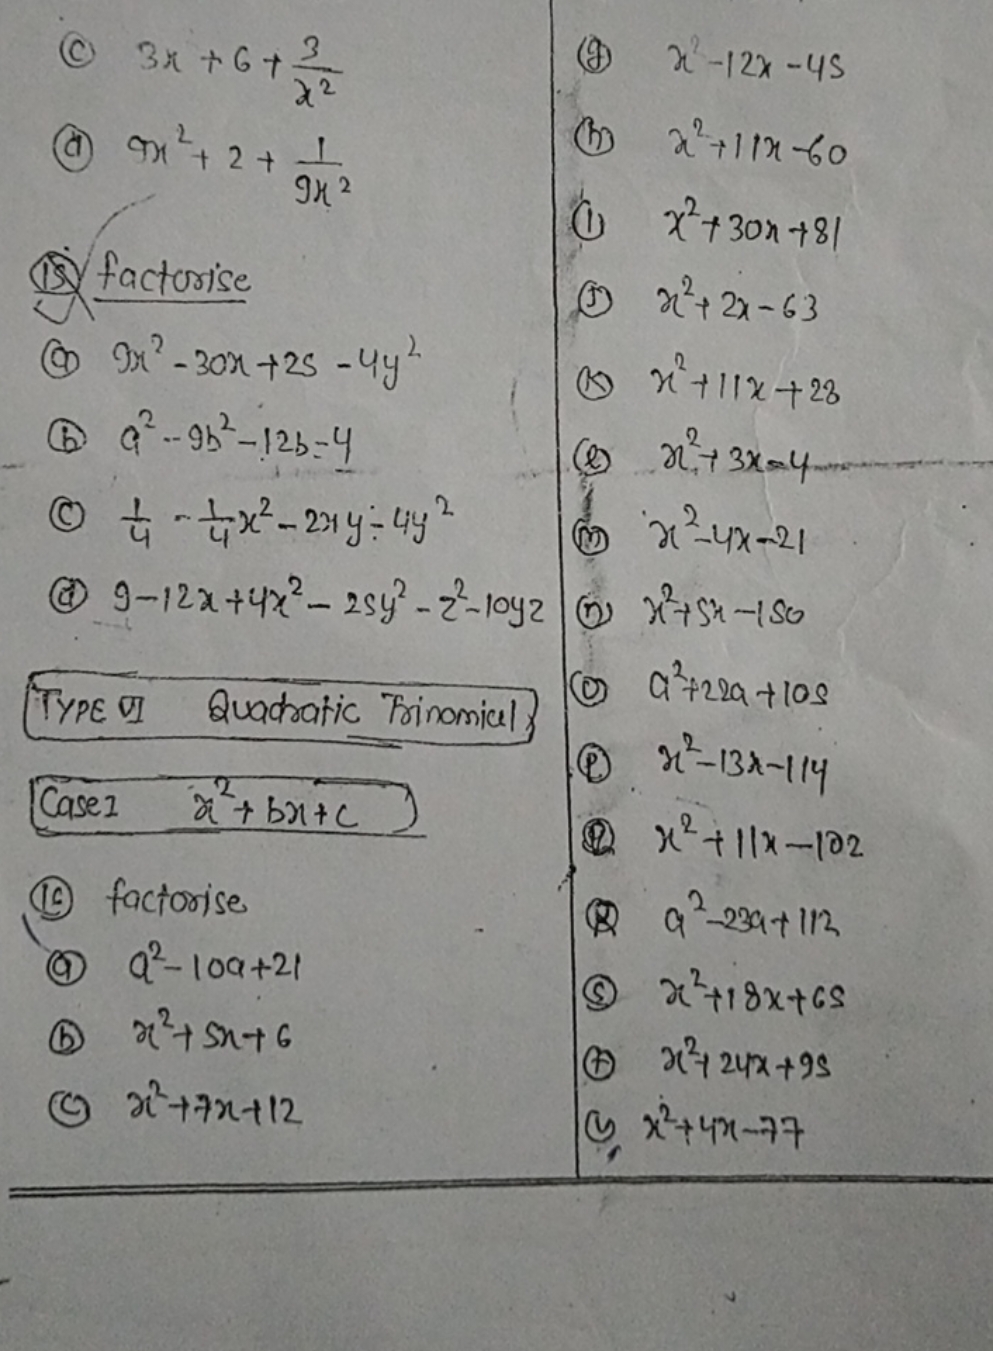 ⓒ 3x + 6 + 3/x²
ⓓ 9x² + 2 + 1/9x²
⑮ factorise
ⓐ 9x² - 30x + 25 - 4y²
ⓑ a² - 9b² - 12b - 4
ⓒ 1/4 - 1/4x² - 2xy - 4y²
ⓓ 9 - 12x + 4x² - 25y² - z² - 10yz
TYPE VI Quadratic Trinomial
Case I x² + bx + c
⑯ factorise
ⓐ a² - 10a + 21
ⓑ x² + 5x + 6
ⓒ x² + 7x + 12
ⓖ x² - 12x - 45
ⓗ x² + 11x - 60
ⓘ x² + 30x + 81
ⓙ x² + 2x - 63
ⓚ x² + 11x + 28
ⓛ x² + 3x - 4
ⓜ x² - 4x - 21
ⓝ x² + 5x - 150
ⓞ a² + 22a + 105
ⓟ x² - 13x - 114
ⓠ x² + 11x - 102
ⓡ a² - 23a + 112
ⓢ x² + 18x + 65
ⓣ x² + 24x + 95
ⓤ x² + 4x - 77